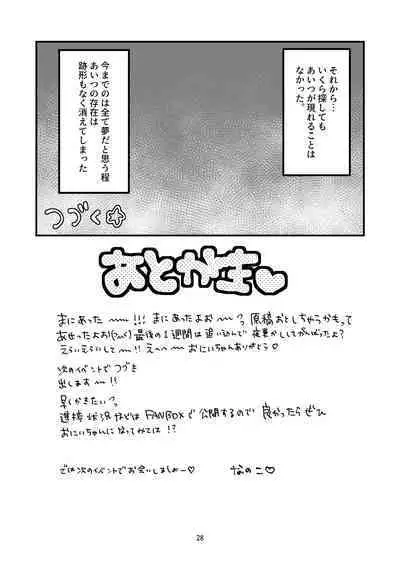 それから…
いくら探しても
あいつが現れることは
なかった。
今までのは全て夢だと思う程
あいつの存在は
跡形もなく消えてしまった
つづく
あとがき♡
まにあった〜!!! まにあったよお〜? 原稿おとしちゃうかもって
あせったよお 最後の1週間は追い込んで夜更かししてがんばったよ?
えらいえらいして〜!! え〜 おにいちゃんありがとう♡
次のイベントでつづき
出します〜!!
早くかきたい?
進捗状況などはFANBOXで公開するので良かったらぜひ
おにいちゃんになってみては!?
では次のイベントでお会いしましょー♡
なのこ♡
28